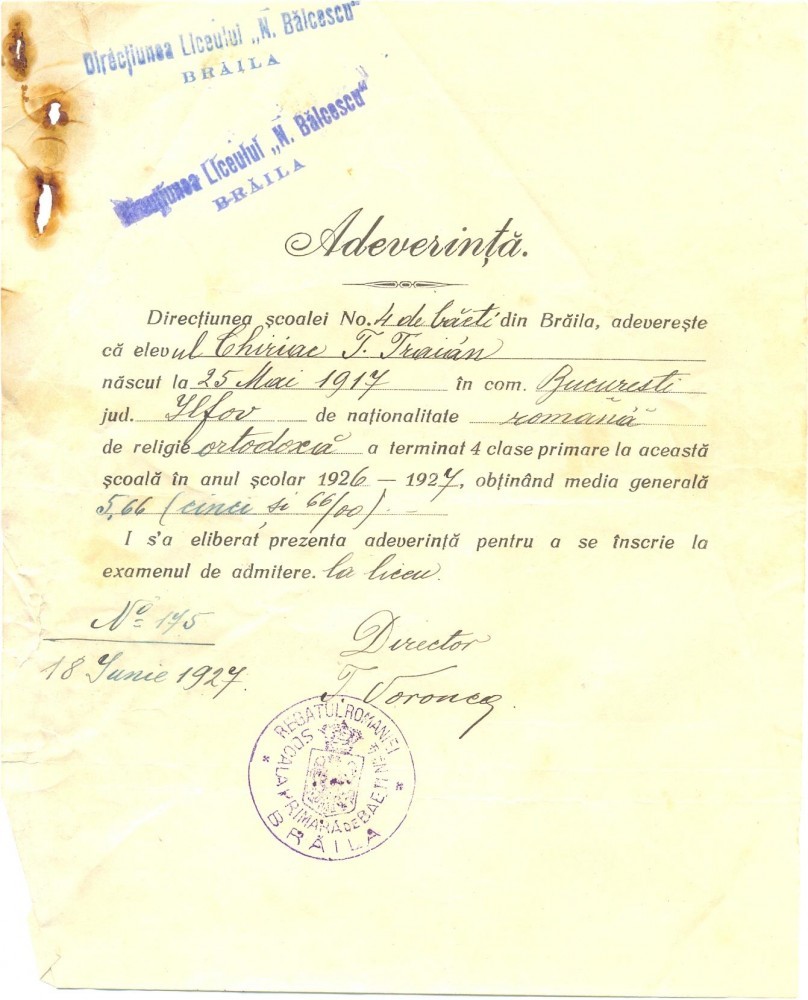 Direcțiunea Liceului „N. Bălcescu”
BRĂILA
Direcțiunea Liceului „N. Bălcescu”
BRĂILA
Adeverință.
Direcțiunea școalei No. 4 de băeți din Brăila, adeverește
că elevul Chiriac T. Traian
născut la 25 Mai 1917 în com. București
jud. Ilfov de naționalitate română
de religie ortodoxă a terminat 4 clase primare la această
școală în anul școlar 1926 — 1927, obținând media generală
5,66 (cinci și 66/00). —
I s'a eliberat prezenta adeverință pentru a se înscrie la
examenul de admitere. la liceu.
No 175
18 Iunie 1927.
Director
T. Voronca
REGATUL ROMANIEI
SCOALA PRIMARA DE BAETI No 4
BRĂILA